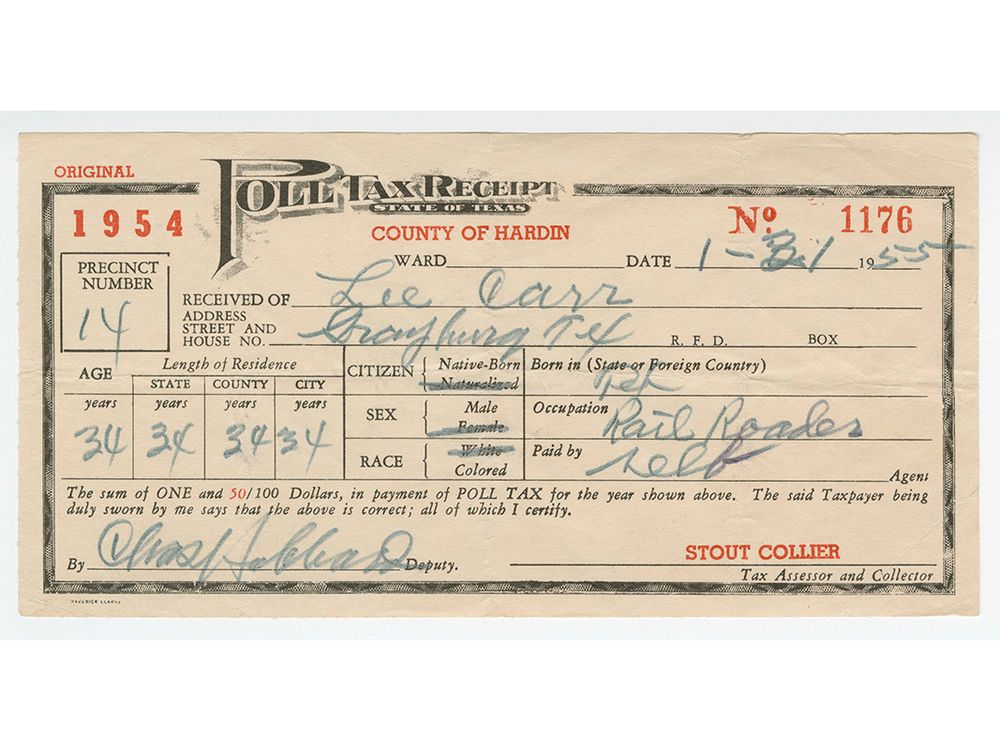 ORIGINAL
POLL TAX RECEIPT
STATE OF TEXAS
1954
COUNTY OF HARDIN
Nº 1176
WARD DATE 1 - 31 1955
PRECINCT NUMBER
14
RECEIVED OF Lee Carr
ADDRESS STREET AND HOUSE NO. Grayburg Tex R. F. D. BOX
AGE
Length of Residence
STATE COUNTY CITY
years years years years
34 34 34 34
CITIZEN { Native-Born Naturalized
Born in (State or Foreign Country) Tex
SEX { Male Female
Occupation Rail Roader
RACE { White Colored
Paid by self
Agent
The sum of ONE and 50/100 Dollars, in payment of POLL TAX for the year shown above. The said Taxpayer being
duly sworn by me says that the above is correct; all of which I certify.
By Chas Hubbard Deputy.
STOUT COLLIER
Tax Assessor and Collector
MAVERICK CLARKE